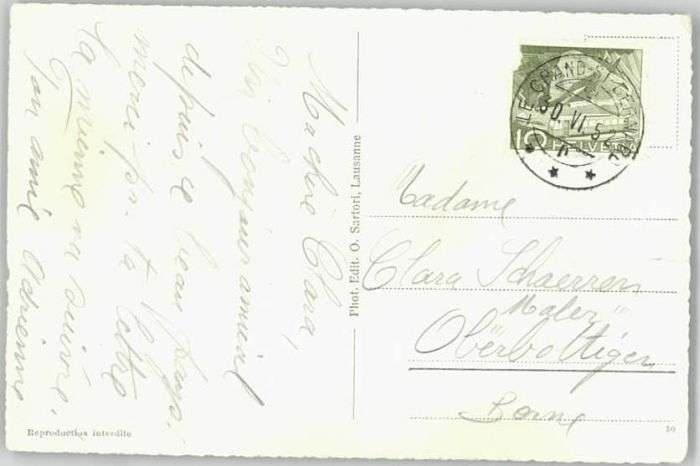 Ma chère Clara,
Un bonjour amical
depuis ce beau pays.
merci pr. ta lettre
la mienne va suivre,
Ton amie Adrienne
Phot. Edit. O. Sartori, Lausanne
LE GRAND-ST-BERNARD
30. VI. 5
10 HELVETIA
Madame
Clara Schaerren
"Maler"
Oberbottigen
Berne
Reproduction interdite